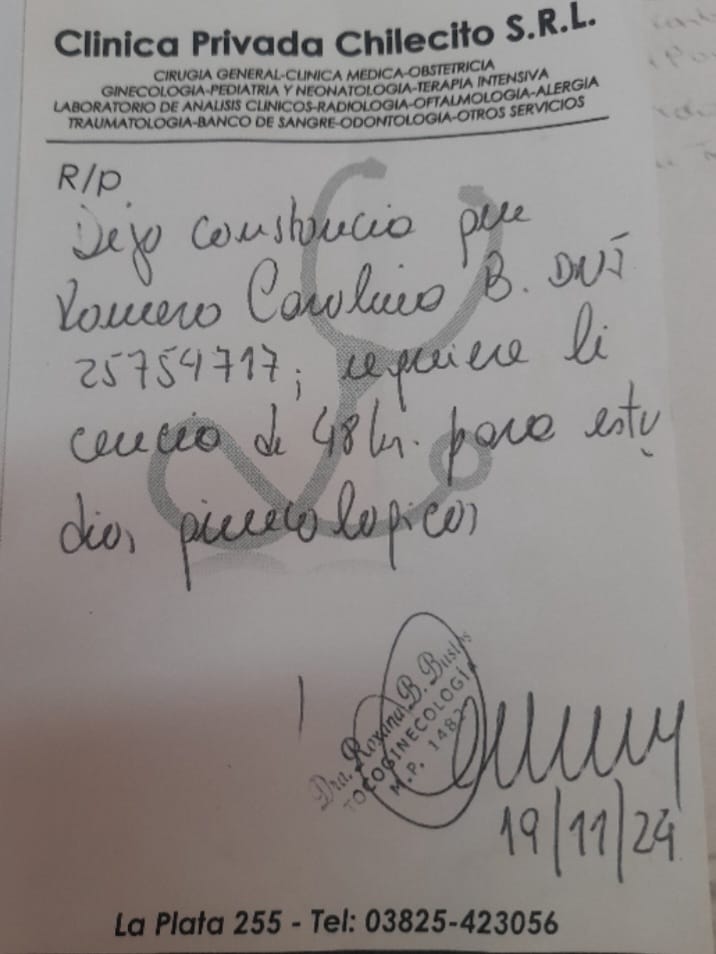 Clinica Privada Chilecito S.R.L.
CIRUGIA GENERAL-CLINICA MEDICA-OBSTETRICIA
GINECOLOGIA-PEDIATRIA Y NEONATOLOGIA-TERAPIA INTENSIVA
LABORATORIO DE ANALISIS CLINICOS-RADIOLOGIA-OFTALMOLOGIA-ALERGIA
TRAUMATOLOGIA-BANCO DE SANGRE-ODONTOLOGIA-OTROS SERVICIOS
R/p
Dejo constancia que
Romero Carolina B. DNI
25754717; requiere li
cencia de 48 hs. para estu
dios ginecologicos
Dra. Roxana B. Bustos
TOCOGINECOLOGÍA
M.P. 1482
19/11/24
La Plata 255 - Tel: 03825-423056